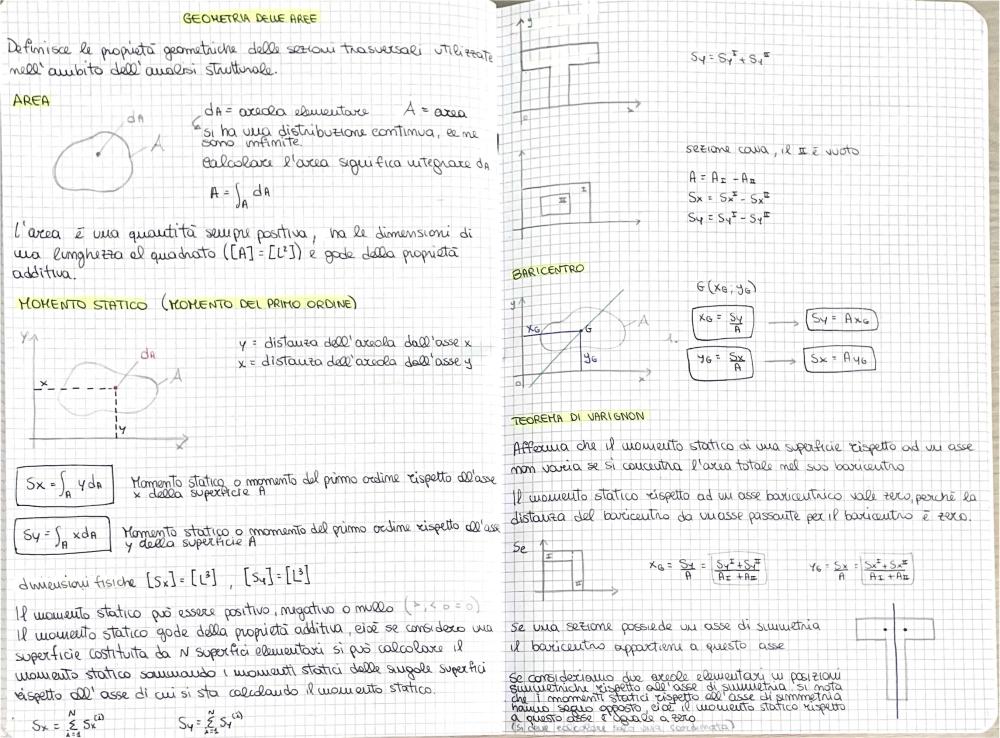 GEOMETRIA DELLE AREE
Definisce le propietà geometriche delle sezioni trasversali utilizzate
nell'ambito dell'analisi strutturale.
AREA
dA
A
dA = areola elementare A = area
si ha una distribuzione continua, ce ne
sono infinite.
Calcolare l'area significa integrare dA
A = ∫_A dA
L'area è una quantità sempre positiva, ha le dimensioni di
una lunghezza al quadrato ([A] = [L²]) e gode della proprietà
additiva.
MOMENTO STATICO (MOMENTO DEL PRIMO ORDINE)
y
dA
A
x
y
x
y = distanza dell'areola dall'asse x
x = distanza dell'areola dall'asse y
Sx = ∫_A y dA
Momento statico o momento del primo ordine rispetto all'asse
x della superficie A
Sy = ∫_A x dA
Momento statico o momento del primo ordine rispetto all'asse
y della superficie A
dimensioni fisiche [Sx] = [L³] , [Sy] = [L³]
Il momento statico può essere positivo, negativo o nullo (>, < o = 0)
Il momento statico gode della proprietà additiva, cioè se considero una
superficie costituita da N superfici elementari si può calcolare il
momento statico sommando i momenti statici delle singole superfici
rispetto all'asse di cui si sta calcolando il momento statico.
Sx = Σ_{i=1}^{N} Sx^(i) Sy = Σ_{i=1}^{N} Sy^(i)
y
x
o
Sy = Sy^I + Sy^II
I
II
sezione cava, il II è vuoto
A = A_I - A_II
Sx = Sx^I - Sx^II
Sy = Sy^I - Sy^II
BARICENTRO
y
xG
G
A
yG
o
x
G (xG; yG)
xG = Sy/A → Sy = A xG
yG = Sx/A → Sx = A yG
TEOREMA DI VARIGNON
Afferma che il momento statico di una superficie rispetto ad un asse
non varia se si concentra l'area totale nel suo baricentro
Il momento statico rispetto ad un asse baricentrico vale zero, perché la
distanza del baricentro da un asse passante per il baricentro è zero.
Se
I
II
xG = Sy/A = (Sy^I + Sy^II)/(A_I + A_II) yG = Sx/A = (Sx^I + Sx^II)/(A_I + A_II)
Se una sezione possiede un asse di simmetria
il baricentro appartiene a questo asse
Se consideriamo due areole elementari in posizioni
simmetriche rispetto all'asse di simmetria si nota
che i momenti statici rispetto all'asse di simmetria
hanno segno opposto, cioè il momento statico rispetto
a questo asse è uguale a zero
(si deve calcolare solo una coordinata)